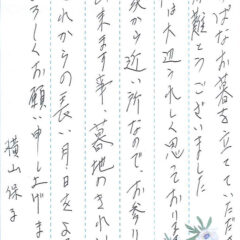 ばなお墓を立てていただ
が難とうございました
は大辺うれしく思っておりま
から近い所なので、お参り
出来ます事、墓地のきれい
れからの長い月日をよ
ろしくお願い申し上げま
横山保子